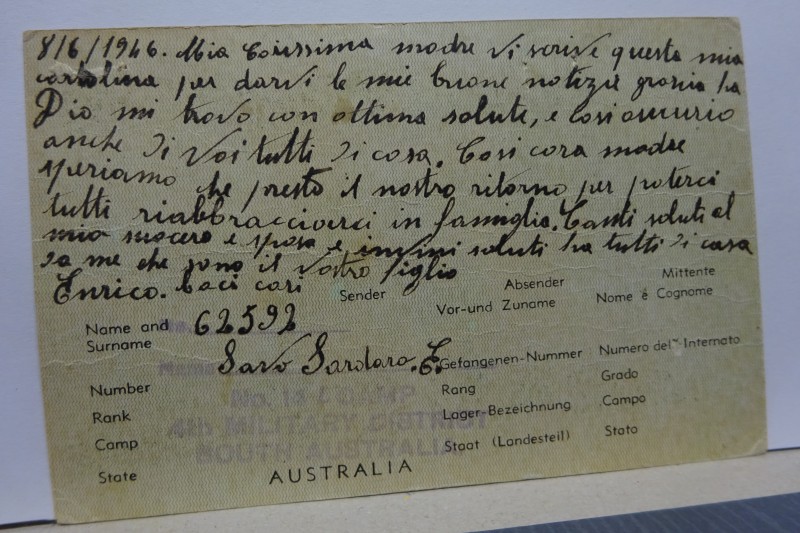 8/6/1946. Mia Carissima madre vi scrive questa mia
cartolina per darvi le mie buone notizie grazia ha
Dio mi trovo con ottima salute, e cosi auucurio
anche di Voi tutti di casa. Cosi cara madre
speriamo che presto il nostro ritorno per poterci
tutti riabbracciarci in famiglia. Tanti saluti al
mio suocero e sposa e infini saluti ha tutti di casa
da me che sono il vostro figlio
Enrico. Baci cari
Sender
Absender
Mittente
Name and Surname
62592
Vor-und Zuname
Nome e Cognome
Savo Sardaro. E.
Number
Gefangenen-Nummer
Numero del Internato
Rank
Rang
Grado
Camp
Lager-Bezeichnung
Campo
State
Staat (Landesteil)
Stato
No. 14 CAMP
4th MILITARY DISTRICT
SOUTH AUSTRALIA
AUSTRALIA